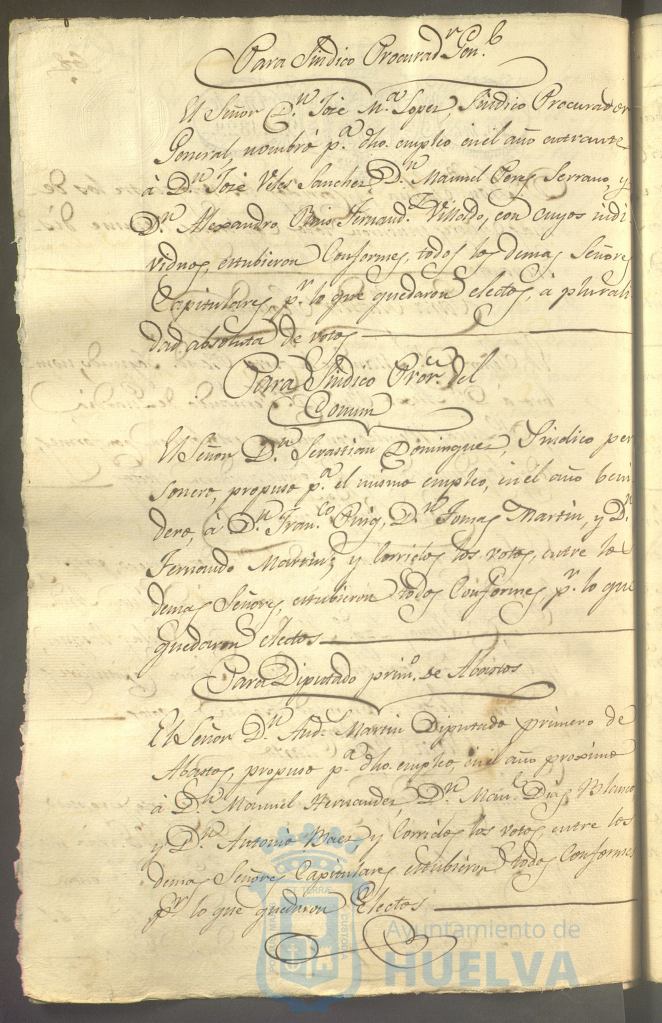 Para Sindico Procurad.r Gen.l
El Señor D.n José M.a Lopez, Sindico Procurador
General, nombró p.a dho. empleo en el año entrante
à D.n José Veles Sanchez, D.n Manuel Perez Serrano, y
D.n Alexandro Fernand.z Villoldo, con cuyos indi
viduos, estubieron Conformes, todos los demas Señores
Capitulares, p.r lo que quedaron electos, à plurali
dad absoluta de votos
Para Sindico Pror. del
Comun
El Señor D.n Sevastian Dominguez, Sindico per
sonero, propuso p.a el mismo empleo, en el año beni
dero, à D.n Fran.co Puig, D.n Tomas Martin, y D.n
Fernando Martin; y Corridos los votos, entre los
demas Señores, estubieron todos Conformes p.r lo que
quedaron electos
Para Diputado prim.o de Abastos
El Señor D.n And.s Martin Diputado primero de
Abastos, propuso p.a dho. empleo, en el año proximo
à D.n Manuel Hernandez, D.n Man.l Dias Blanco
y D.n Antonio Baez y Corridos los votos, entre los
demas Señores Capitulares estubieron todos Conformes
p.r lo que quedaron Electos
Ayuntamiento de
HUELVA